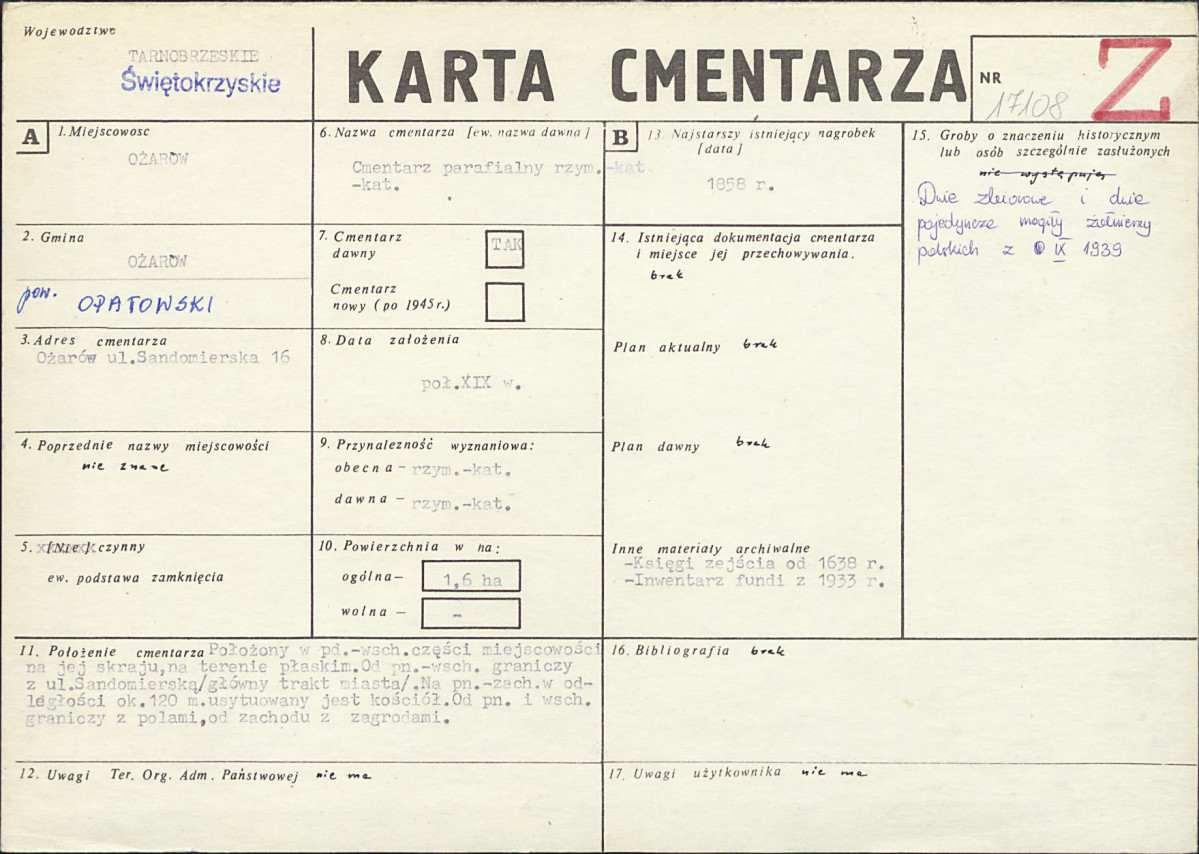 Województwo
TARNOBRZESKIE
Świętokrzyskie
KARTA CMENTARZA
NR
17108
Z
A
1. Miejscowosc
OŻARÓW
2. Gmina
OŻARÓW
pow. OPATOWSKI
3. Adres cmentarza
Ożarów ul.Sandomierska 16
4. Poprzednie nazwy miejscowości
nie znane
5. [Nie] czynny
ew. podstawa zamknięcia
6. Nazwa cmentarza [ew. nazwa dawna]
Cmentarz parafialny rzym.-kat
-kat.
7. Cmentarz
dawny
TAK
Cmentarz
nowy (po 1945 r.)
8. Data założenia
poł.XIX w.
9. Przynależność wyznaniowa:
obecna – rzym.-kat.
dawna – rzym.-kat.
10. Powierzchnia w ha:
ogólna – 1,6 ha
wolna – -
B
13. Najstarszy istniejący nagrobek
[data]
1858 r.
14. Istniejąca dokumentacja cmentarza
i miejsce jej przechowywania.
brak
Plan aktualny brak
Plan dawny brak
Inne materiały archiwalne
-Księgi zejścia od 1638 r.
-Inwentarz fundi z 1933 r.
15. Groby o znaczeniu historycznym
lub osób szczególnie zasłużonych
nie występuję
Dwie zbiorowe i dwie
pojedyncze mogiły żołnierzy
polskich z IX 1939
11. Położenie cmentarza Położony w pd.-wsch.części miejscowości
na jej skraju,na terenie płaskim.Od pn.-wsch. graniczy
z ul.Sandomierską/główny trakt miasta/.Na pn.-zach.w od-
ległości ok.120 m.usytuowany jest kościół.Od pn. i wsch.
graniczy z polami,od zachodu z zagrodami.
16. Bibliografia brak
12. Uwagi Ter. Org. Adm. Państwowej nie ma
17. Uwagi użytkownika nie ma